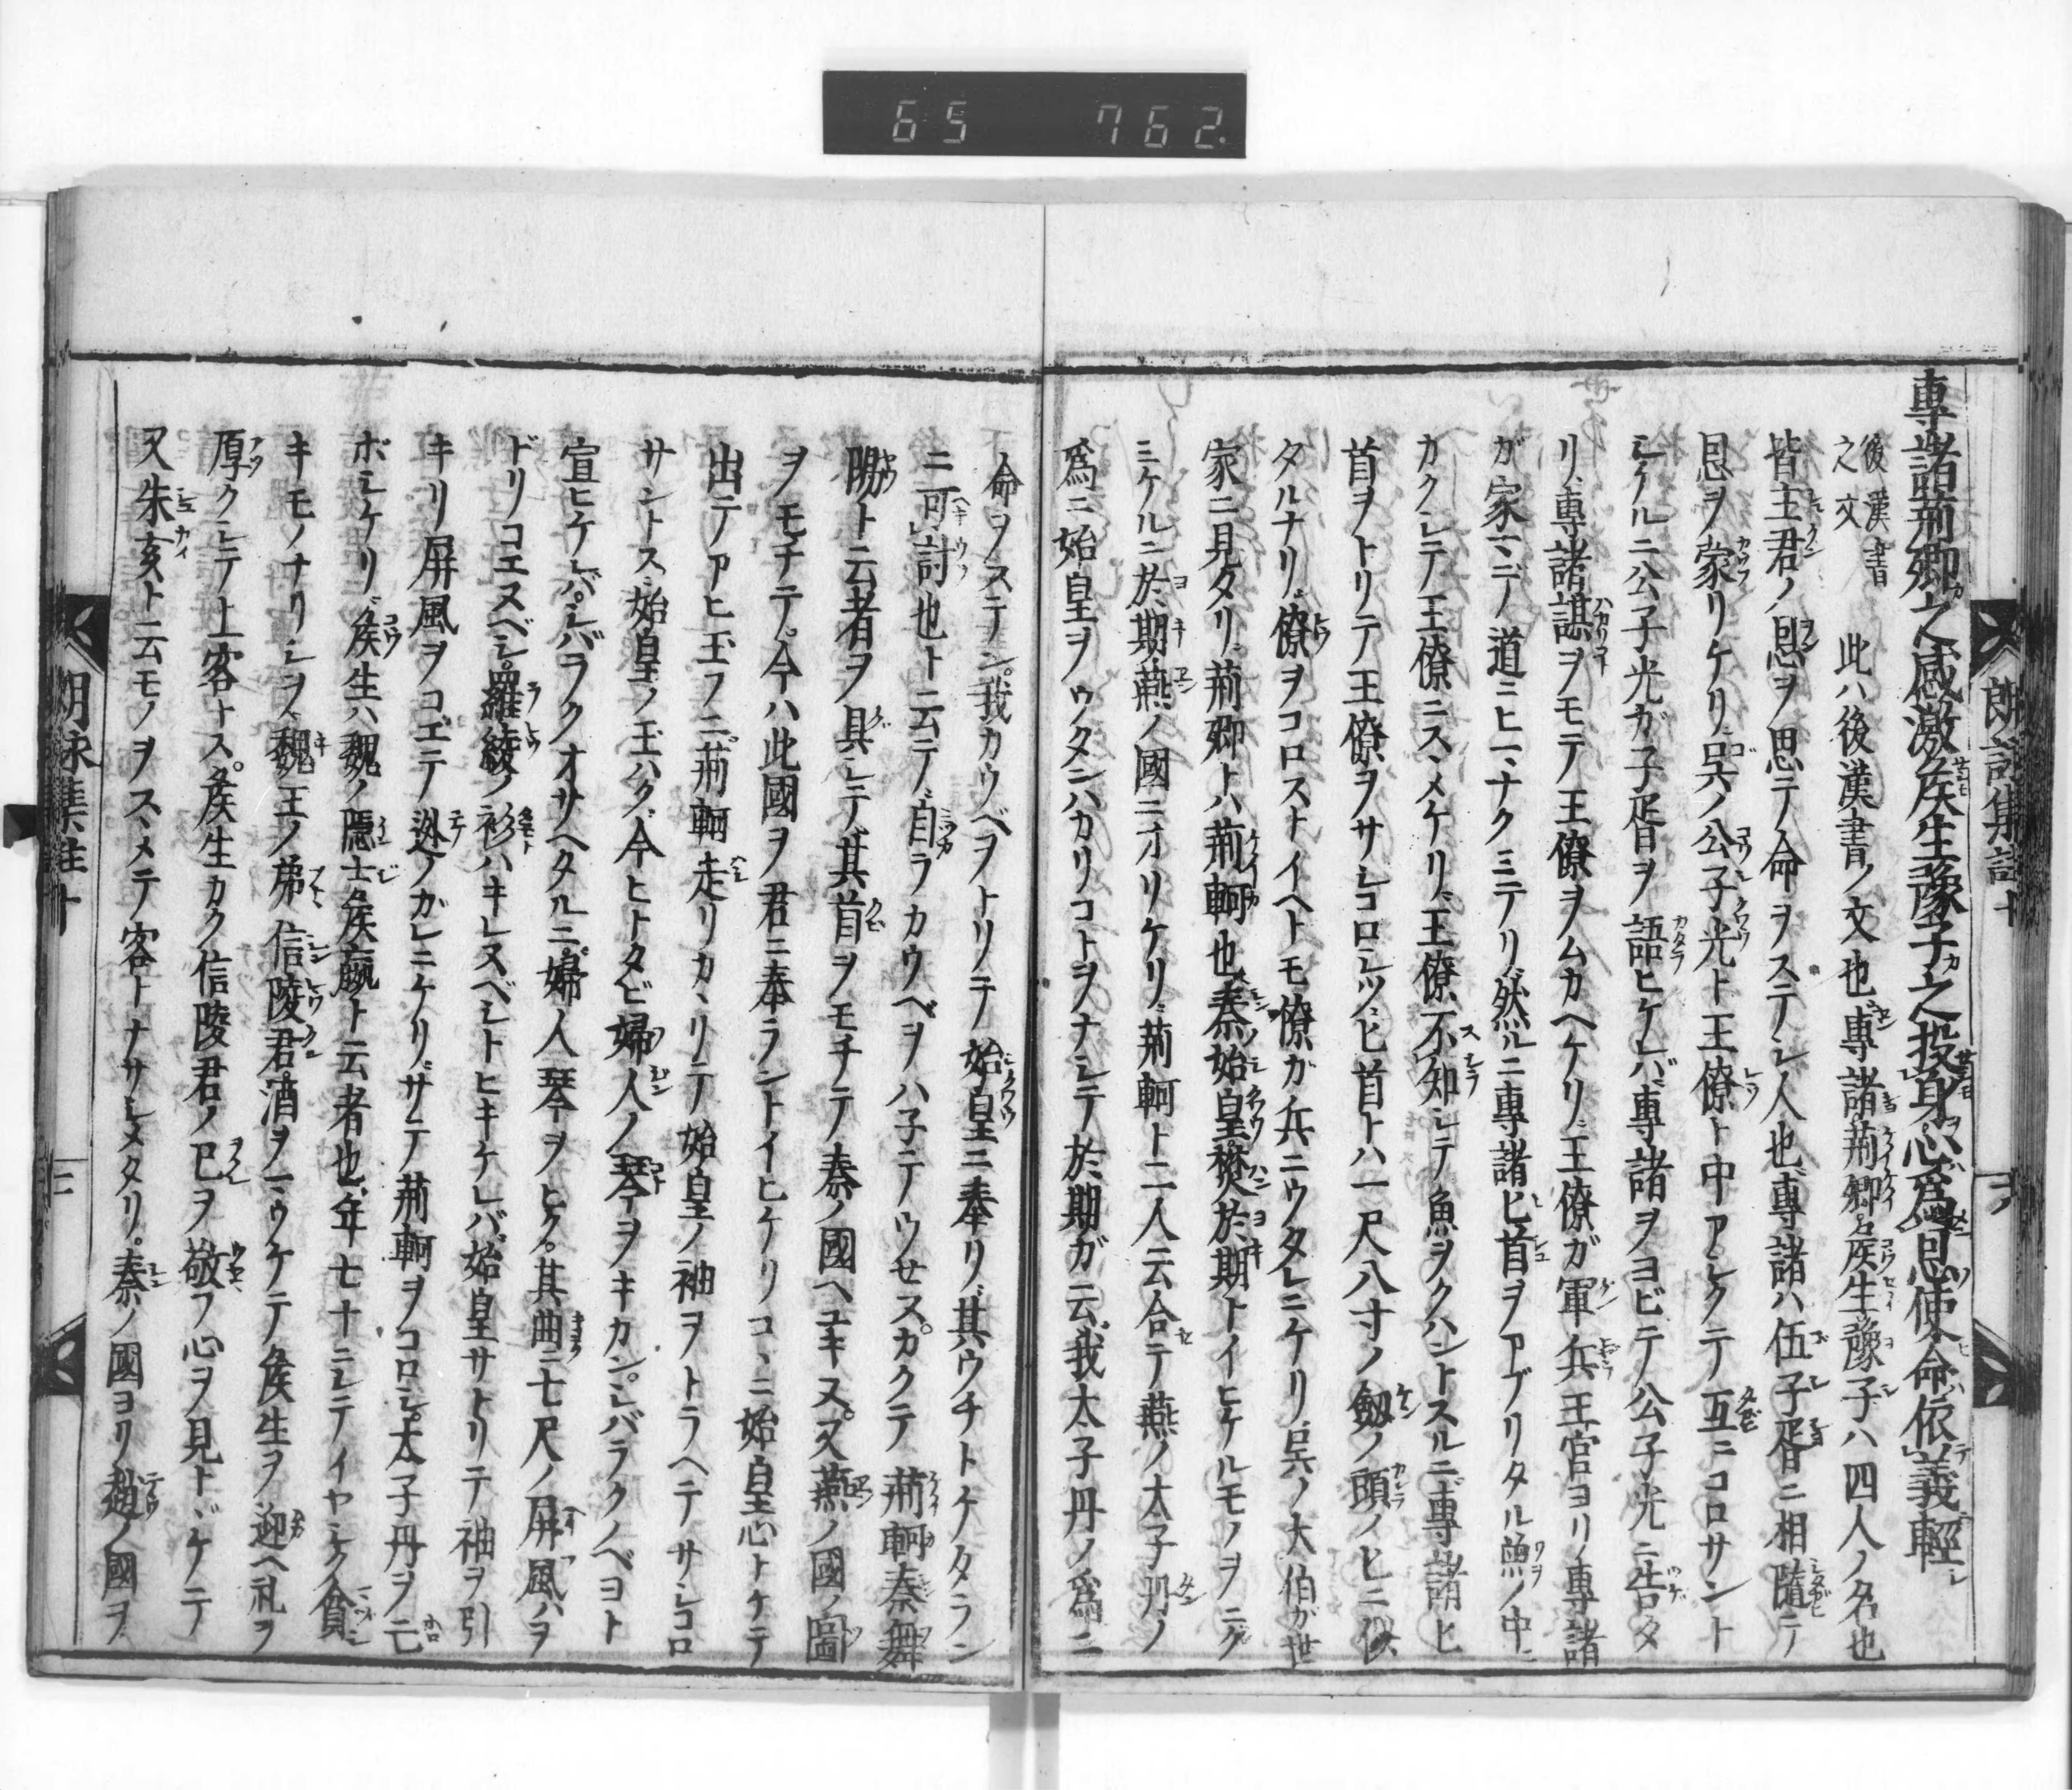 65 762.
朗詠集註十
專諸荊卿之感激侯生豫子之投身心爲恩使命依義輕
後漢書
之文
此ハ後漢書ノ文也專諸荊卿侯生豫子ハ四人ノ名也
皆主君ノ恩ヲ思テ命ヲステシ人也專諸ハ伍子胥ニ相隨テ
恩ヲ蒙リケリ呉ノ公子光ト王僚ト中アシクテ互ニコロサント
シケルニ公子光ガ子胥ヲ語ヒケレバ專諸ヲヨビテ公子光ニ告タ
リ專諸謀ヲモテ王僚ヲムカヘケリ王僚ガ軍兵王官ヨリノ專諸
ガ家マデノ道ニヒマナクミテリ然ルニ專諸ヒ首ヲアブリタル魚ノ中ニ
カクシテ王僚ニスヽメケリ王僚不知シテ魚ヲクハントスルニ專諸ヒ
首ヲトリテ王僚ヲサシコロシツヒ首トハ一尺八寸ノ劔ノ頭ノヒニ似
タルナリ僚ヲコロストイヘトモ僚ガ兵ニウタレニケリ呉ノ大伯ガ世
家ニ見タリ荊卿トハ荊軻也秦始皇樊於期トイヒケルモノヲニク
ミケルニ於期燕ノ國ニオリケリ荊軻ト二人云合テ燕ノ太子丹ノ
爲ニ始皇ヲウタンハカリコトヲナシテ於期ガ云我太子丹ノ爲ニ
命ヲステン我カウベヲトリテ始皇ニ奉リ其ウチトケタラン
ニ可討也ト云テ自ラカウベヲハ子テウセスカクテ荊軻秦舞
陽ト云者ヲ具シテ其首ヲモチテ秦ノ國ヘユキヌ又燕ノ國ノ圖
ヲモチテ今ハ此國ヲ君ニ奉ラントイヒケリコヽニ始皇心トケテ
出テアヒ玉フニ荊軻走リカヽリテ始皇ノ袖ヲトラヘテサシコロ
サントス始皇ノ玉ハク今ヒトタビ婦人ノ琴ヲキカンシバラクノベヨト
宣ヒケレバシバラクオサヘタルニ婦人琴ヲヒク其曲ニ七尺ノ屏風ハヲ
ドリコエヌベシ羅綾ノ衫ハキレヌベシトヒキケレバ始皇サトリテ袖ヲ引
キリ屏風ヲコエテ迯ノカレニケリサテ荊軻ヲコロシ太子丹ヲ亡
ボシケリ侯生ハ魏ノ隱士侯嬴ト云者也年七十ニシテイヤシク貧
キモノナリシヲ魏王ノ弟信陵君酒ヲマウケテ侯生ヲ迎ヘ礼ヲ
厚クシテ上客トス侯生カク信陵君ノ已ヲ敬フ心ヲ見トヾケテ
又朱亥ト云モノヲスヽメテ客トナサシメタリ秦ノ國ヨリ趙ノ國ヲ
朗詠集註十